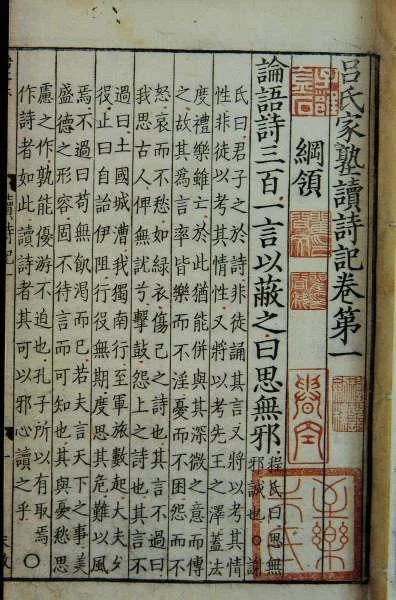 呂氏家塾讀詩記卷第一
綱領
論語詩三百一言以蔽之曰思無邪程氏曰思無
邪誠也○謝
氏曰君子之於詩非徒誦其言又將以考其情
性非徒以考其情性又將以考先王之澤蓋法
度禮樂雖亡於此猶能併與其深微之意而傳
之故其為言率皆樂而不淫憂而不困怨而不
怒哀而不愁如綠衣傷己之詩也其言不過曰
我思古人俾無訧兮擊鼓怨上之詩也其言不
過曰土國城漕我獨南行至軍旅數起大夫久
役止曰自詒伊阻行役無期度思其危難以風
焉不過曰苟無飢渴而已若夫言天下之事美
盛德之形容固不待言而可知也其與憂愁思
慮之作孰能優游不迫也孔子所以有取焉○
作詩者如此讀詩者其可以邪心讀之乎
讀詩記一